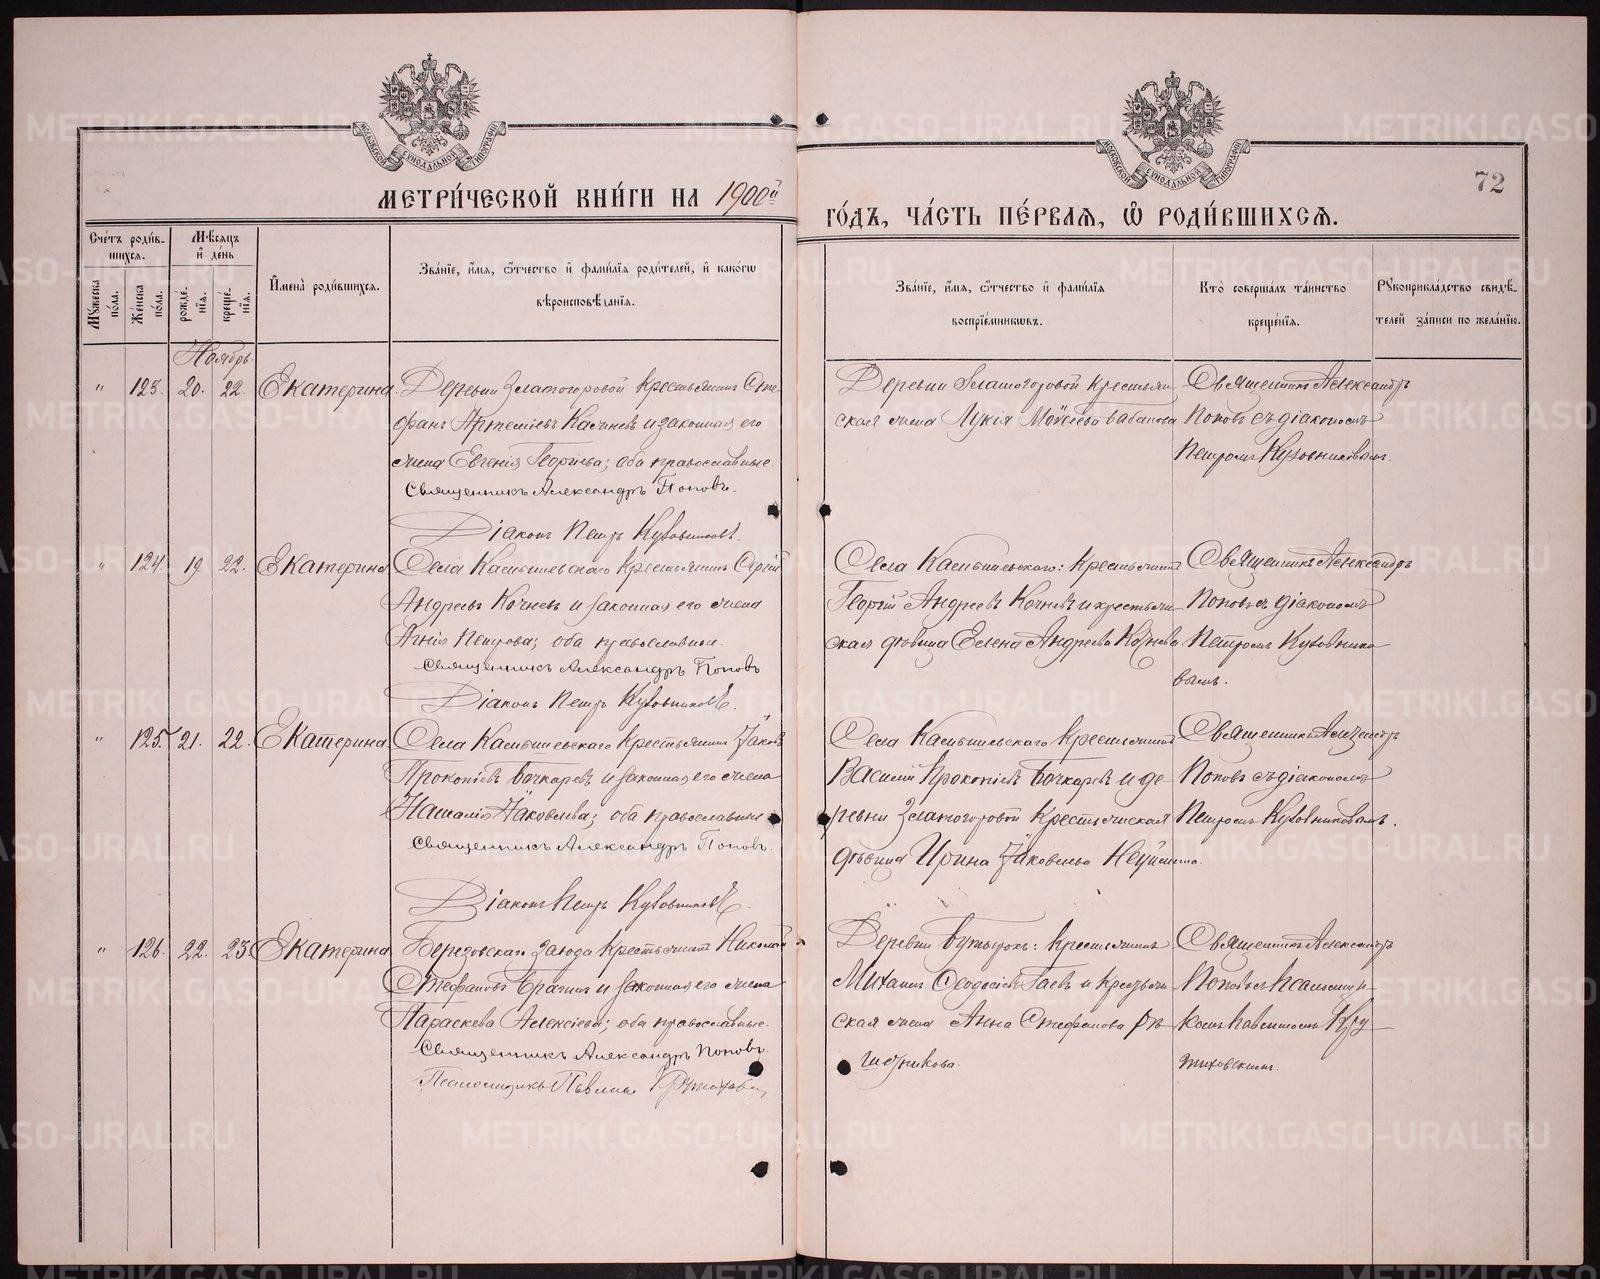 МЕТРИ́ЧЕСКОЙ КНИ́ГИ НА 1900й
ГО́ДЪ, ЧА́СТЬ ПЕ́РВАЯ, Ѡ РОДИ́ВШИХСЯ.
72
Сче́тъ роди́в-
шихся.
Мѣсяцъ
и҆ де́нь
Мꙋ́жеска по́ла.
Же́нска по́ла.
рожде́-
нїя.
креще́-
нїя.
И҆мена̀ роди́вшихся.
Зва́нїе, и҆́мя, ѻ҆́тчество и҆ фами́лїя роди́телей, и҆ како́гѡ
вѣроисповѣ́данїя.
Зва́нїе, и҆́мя, ѻ҆́тчество и҆ фами́лїя
воспрїе́мникѡвъ.
Кто̀ соверша́лъ та́инство
креще́нїя.
Рꙋкоприкла́дство свидѣ́-
телей за́писи по жела́нїю.
Ноябрь
" 123. 20. 22. Екатерина
Деревни Златогоровой крестьянинъ Сте-
фанъ Артемьевъ и законная его
жена Евгенія Георгіева; оба православные.
Священникъ Александръ Поповъ.
Діаконъ Петръ Кузовниковъ.
Деревни Златогоровой крестьян-
ская жена Лукія Моѵсеева
Священникъ Александръ
Поповъ съ діакономъ
Петромъ Кузовниковымъ.
" 124. 19. 22. Екатерина
Села Камышевскаго крестьянинъ Сергій
Андреевъ Кочневъ и законная его жена
Агнія Петрова; оба православные.
Священникъ Александръ Поповъ
Діаконъ Петръ Кузовниковъ.
Села Камышевскаго: крестьянинъ
Георгій Андреевъ Кочневъ и крестьян-
ская дѣвица Елена Андреева Кочнева
Священникъ Александръ
Поповъ съ діакономъ
Петромъ Кузовнико-
вымъ.
" 125. 21. 22. Екатерина
Села Камышевскаго крестьянинъ Іаковъ
Прокопіевъ Бочкаревъ и законная его жена
Наталія Іаковлева; оба православные
Священникъ Александръ Поповъ.
Діаконъ Петръ Кузовниковъ.
Села Камышевскаго крестьянинъ
Василій Прокопіевъ Бочкаревъ и де-
ревни Златогоровой крестьянская
дѣвица Ирина Іаковлева
Священникъ Александръ
Поповъ съ діакономъ
Петромъ Кузовниковымъ.
" 126. 22. 23. Екатерина
Березовскаго завода крестьянинъ Николай
Стефановъ Брагинъ и законная его жена
Параскева Алексіева; оба православные.
Священникъ Александръ Поповъ.
Псаломщикъ Павлинъ
Деревни Бутырокъ: крестьянинъ
Михаилъ Ѳеодосіевъ Гаевъ и крестьян-
ская жена Анна Стефанова Рѣ-
шетникова.
Священникъ Александръ
Поповъ съ псаломщи-
комъ Павлиномъ Кру-
тиховскимъ.